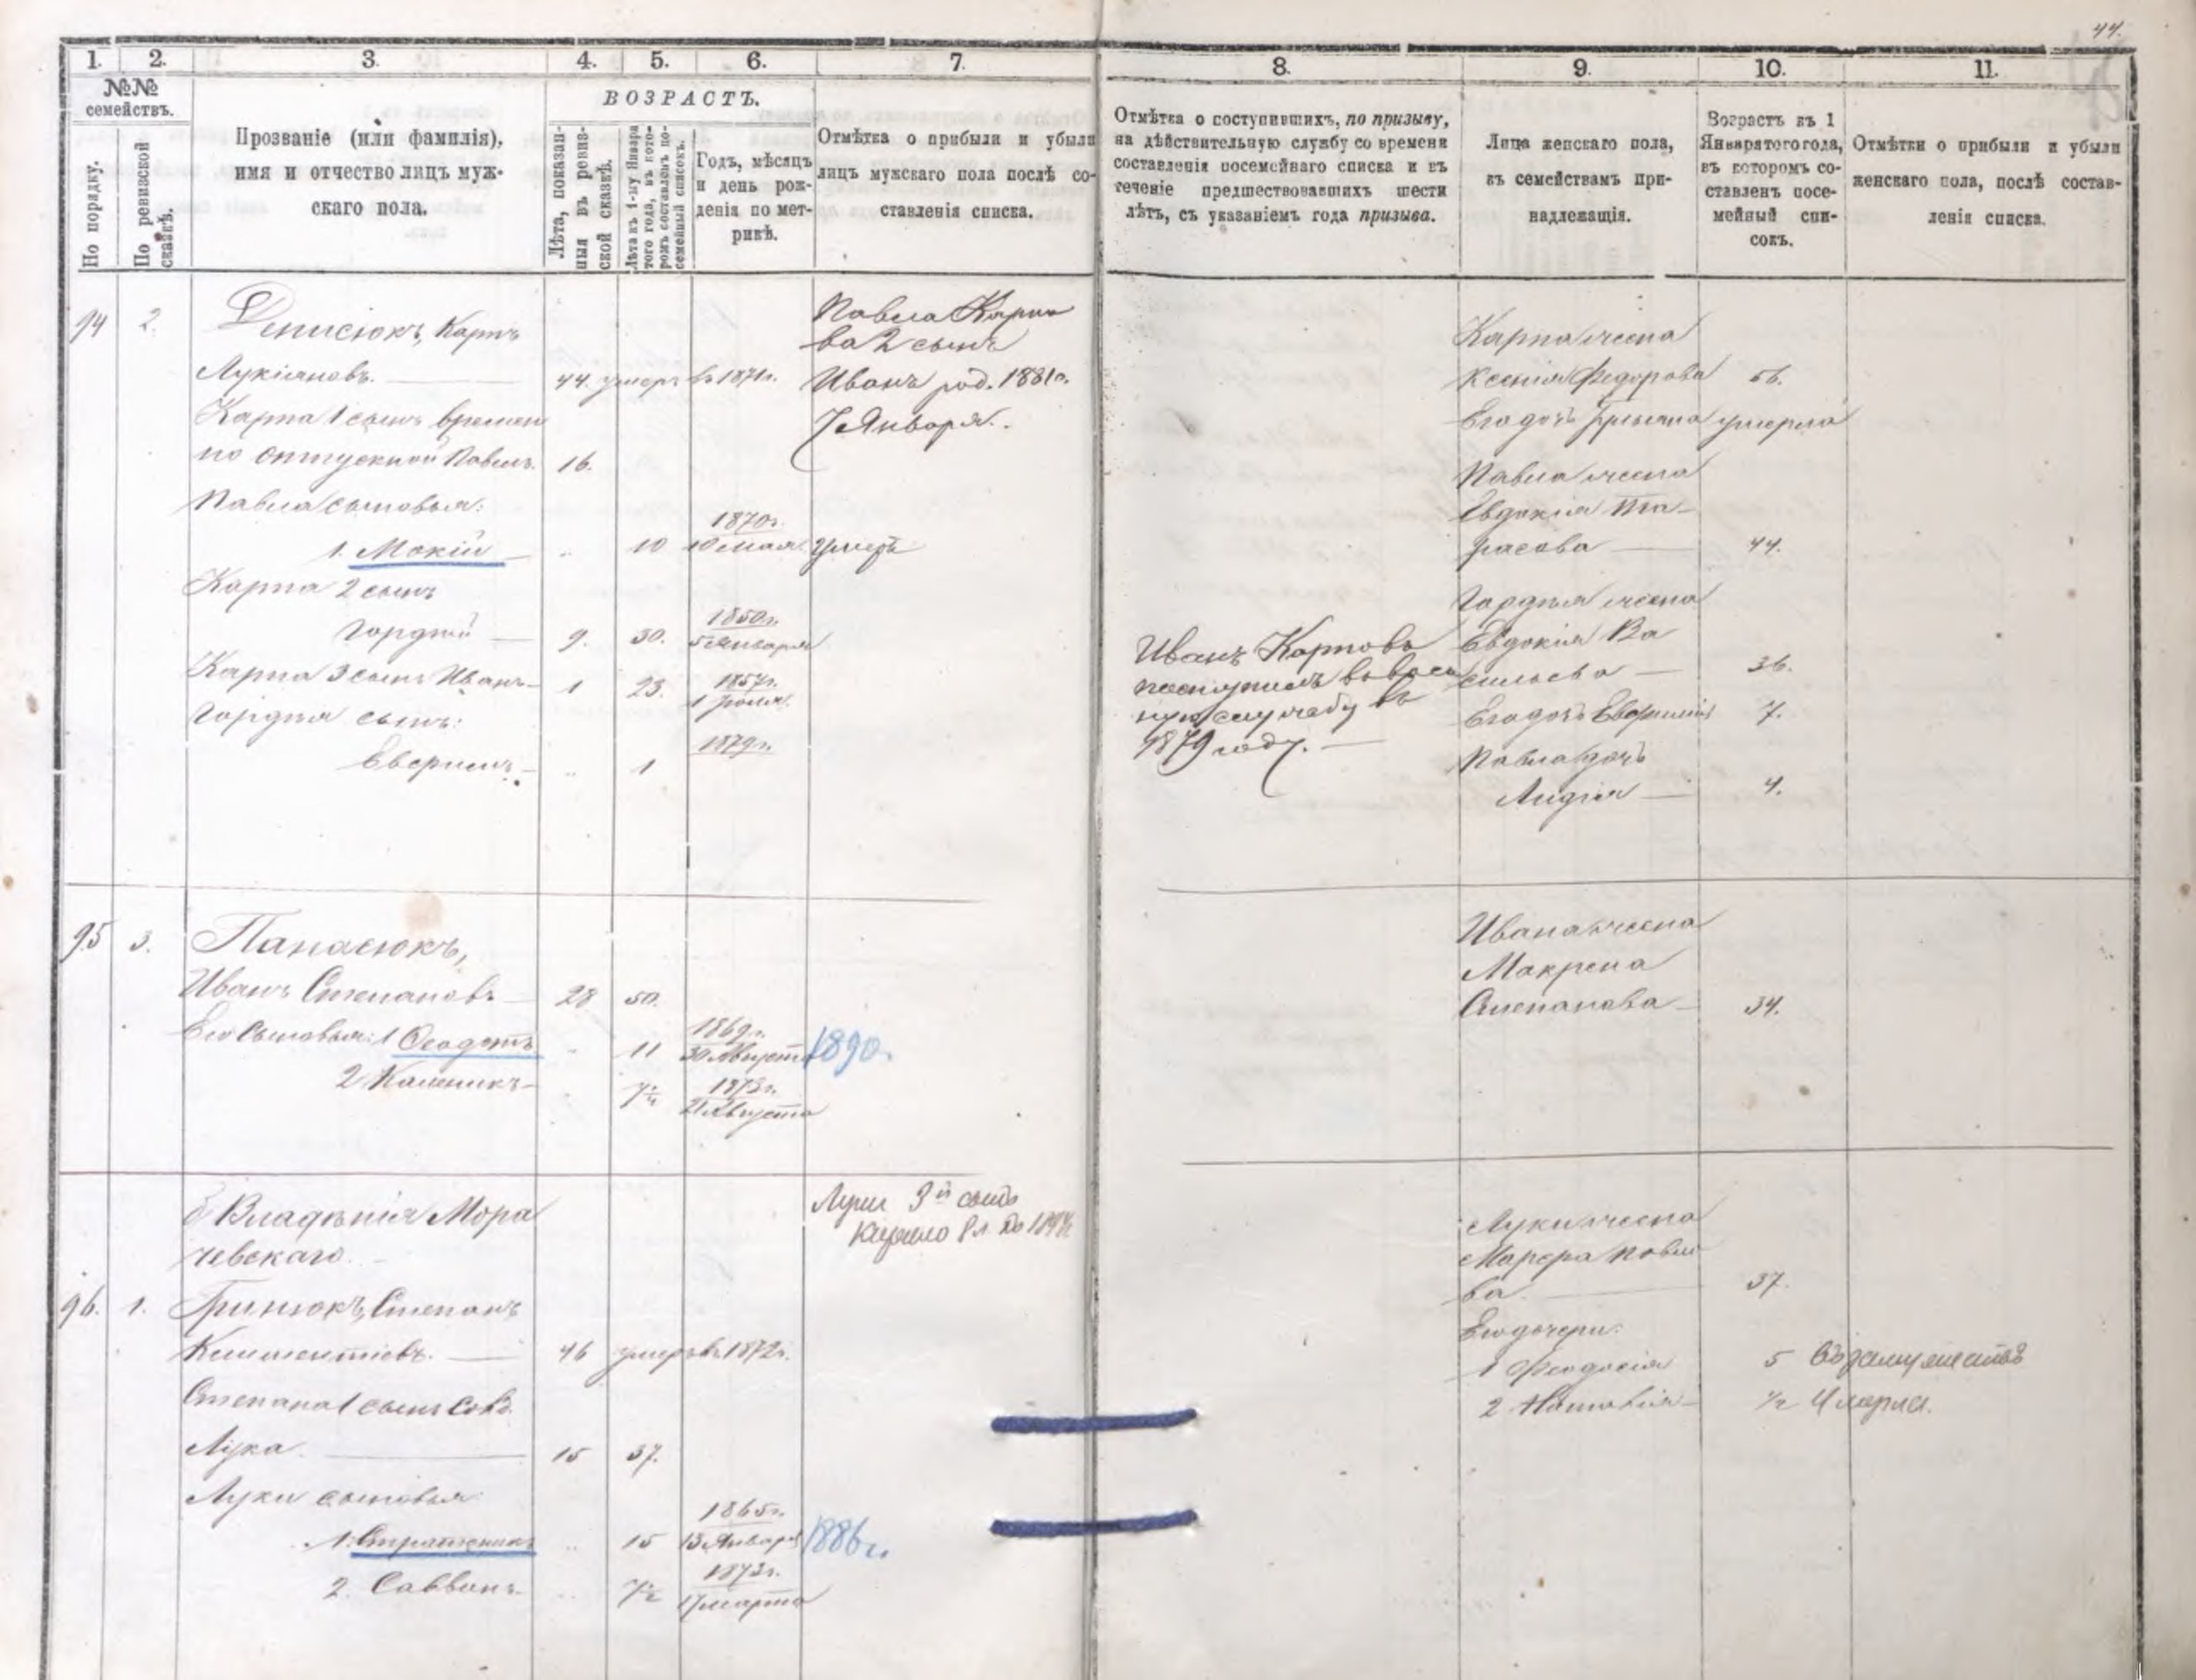 44.
1.
2.
3.
4.
5.
6.
7.
8.
9.
10.
11.
№№
семействъ.
По порядку.
По ревизской
сказкѣ.
Прозваніе (или фамилія),
имя и отчество лицъ муж-
скаго пола.
ВОЗРАСТЪ.
Лѣта, показан-
ныя въ ревиз-
ской сказкѣ.
Лѣта къ 1-му Января
того года, въ кото-
ромъ составленъ по-
семейный списокъ.
Годъ, мѣсяцъ
и день рож-
денія по мет-
рикѣ.
Отмѣтка о прибыли и убыли
лицъ мужскаго пола послѣ со-
ставленія списка.
Отмѣтка о поступившихъ, по призыву,
на дѣйствительную службу со времени
составленія посемейнаго списка и въ
теченіе предшествовавшихъ шести
лѣтъ, съ указаніемъ года призыва.
Лица женскаго пола,
къ семействамъ при-
надлежащія.
Возрастъ къ 1
Января того года,
въ которомъ со-
ставленъ посе-
мейный спи-
сокъ.
Отмѣтки о прибыли и убыли
женскаго пола, послѣ состав-
ленія списка.
94 2. Денисюкъ, Карпъ
Лукіановъ. 44. умеръ въ 1871г.
Карпа 1 сынъ времен
но отпускной Павелъ. 16.
Павла сыновья:
1. Мокій 10 1870г. 10 Мая умеръ
Карпа 2 сынъ
Гордій 9. 30. 1850г. 5 Января
Карпа 3 сынъ Иванъ 1 23. 1857г. 1 Іюля
Гордія сынъ:
1 1879г.
Павла Карпо
ва 2 сынъ
Иванъ род. 1881г.
7 Января.
Иванъ Карповъ
поступилъ въ воен
ную службу въ
1879 году.
Карпа жена
Ксенія Федорова 56.
Его дочь умерла
Павла жена
Евдокія Та-
расова 44.
Гордія жена
Евдокія Ва
сильева 36.
Его дочь 7.
Павла дочь
Лидія 4.
95 3. Панасюкъ,
Иванъ Степановъ 28 50.
Его сыновья: 1 Феодотъ 11 1869г. 30 Августа 1890.
2 Каленикъ 1873г. 21 Августа
Ивана жена
Макрена
Степанова 34.
б. Владѣнія Мора
чевскаго.
96. 1. Гринюкъ, Степанъ
Климентіевъ. 46 умеръ въ 1872г.
Степана 1 сынъ
Лука 15 37.
Луки сыновья
1. 15 1865г. 13 Января 1886г.
2. 1873г. 17 марта
Луки 3й сынъ
Луки жена
37.
Его дочери:
1 Феодосія 5 въ замужествѣ
2 ½ умерла.